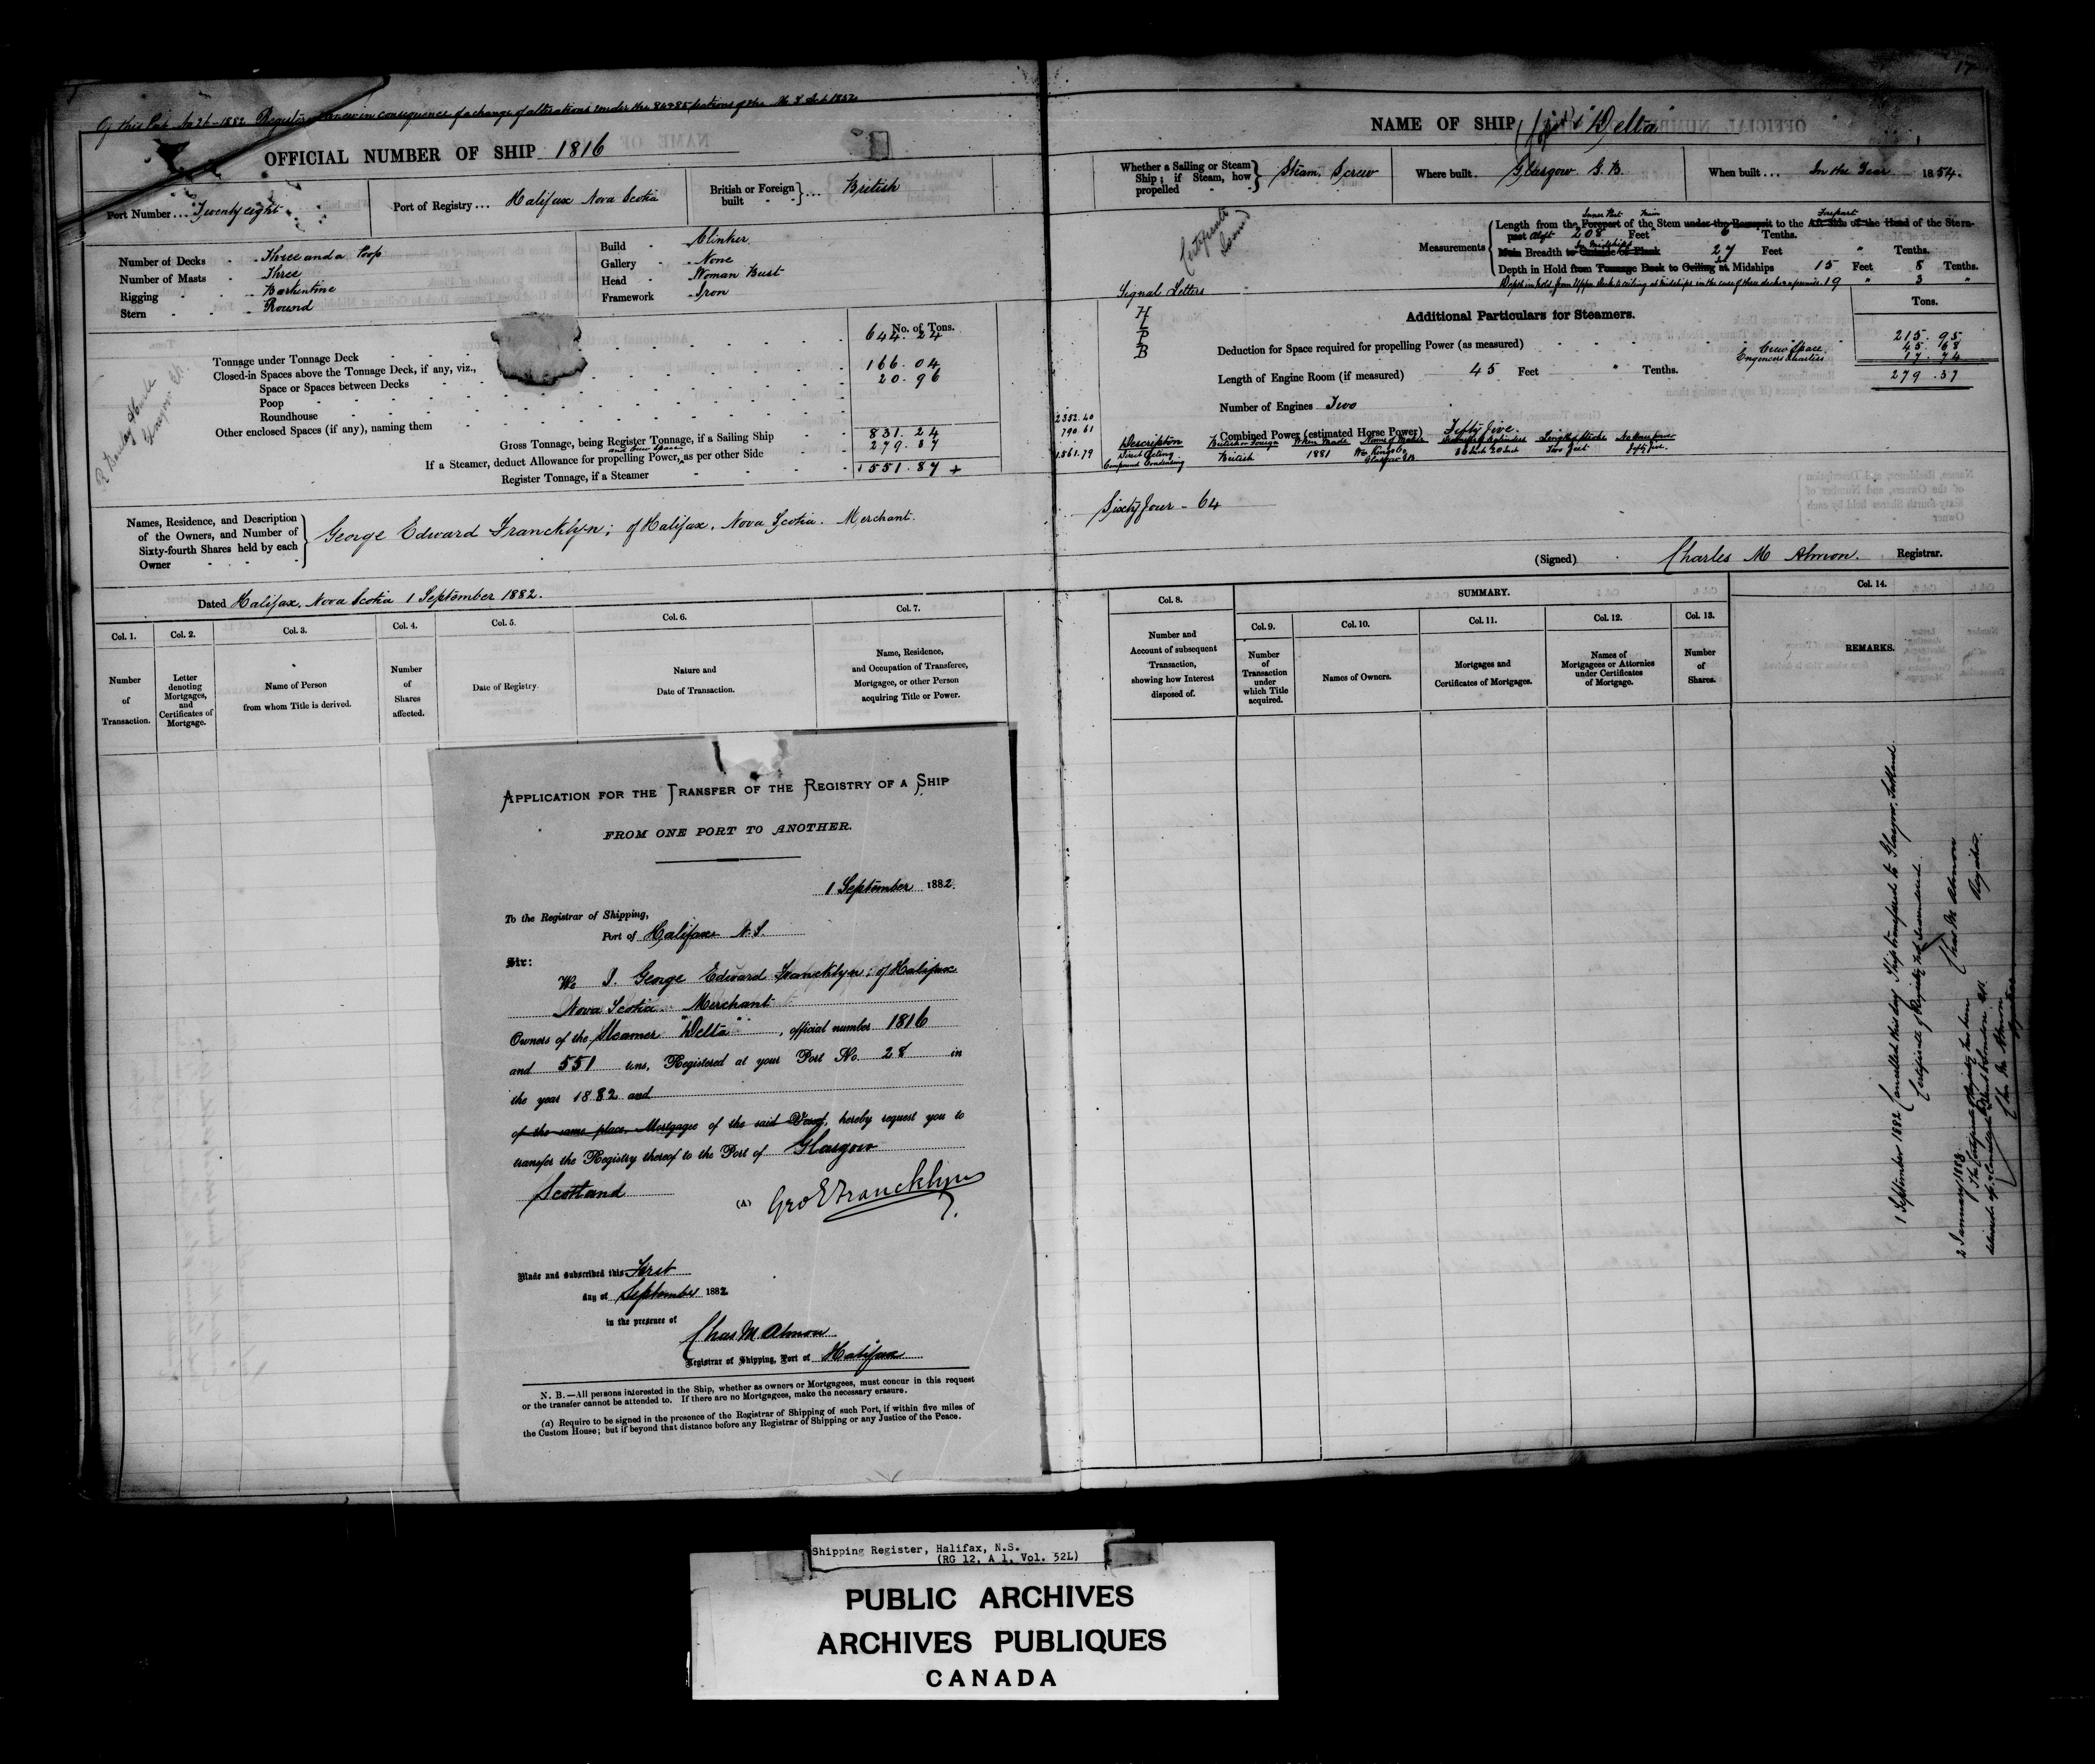 Of this Port No 26-1882 Registered anew in consequence of a change of alterations under the 84 & 85 sections of the M S Act 1852
OFFICIAL NUMBER OF SHIP 1816
Port Number ... Twenty eight
Port of Registry ... Halifax Nova Scotia
British or Foreign built ... British
Number of Decks - Three and a Poop
Number of Masts - Three
Rigging - Barkentine
Stern - Round
Build - Clinker
Gallery - None
Head - Woman Bust
Framework - Iron
No. of Tons.
Tonnage under Tonnage Deck 644.24
Closed-in Spaces above the Tonnage Deck, if any, viz.,
Space or Spaces between Decks 166.04
Poop 20.96
Roundhouse
Other enclosed Spaces (if any), naming them
Gross Tonnage, being Register Tonnage, if a Sailing Ship 831.24
and Crew Space
If a Steamer, deduct Allowance for propelling Power, as per other Side 279.37
Register Tonnage, if a Steamer 551.87 +
Names, Residence, and Description of the Owners, and Number of Sixty-fourth Shares held by each Owner
George Edward Francklyn; of Halifax, Nova Scotia. Merchant.
Dated Halifax, Nova Scotia 1 September 1882.
Col. 1. Number of Transaction.
Col. 2. Letter denoting Mortgages, and Certificates of Mortgage.
Col. 3. Name of Person from whom Title is derived.
Col. 4. Number of Shares affected.
Col. 5. Date of Registry.
Col. 6. Nature and Date of Transaction.
Col. 7. Name, Residence, and Occupation of Transferee, Mortgagee, or other Person acquiring Title or Power.
APPLICATION FOR THE TRANSFER OF THE REGISTRY OF A SHIP
FROM ONE PORT TO ANOTHER.
1 September 1882.
To the Registrar of Shipping,
Port of Halifax N.S.
Sir:
We I. George Edward Francklyn; of Halifax
Nova Scotia Merchant
Owners of the Steamer "Delta", official number 1816
and 551 tons, Registered at your Port No. 28 in
the year 1882 and
of the same place, Mortgagee of the said Vessel, hereby request you to
transfer the Registry thereof to the Port of Glasgow
Scotland
(A) Geo E Francklyn
Made and subscribed this First
day of September 1882
in the presence of
Chas M. Almon
Registrar of Shipping, Port of Halifax
N. B.—All persons interested in the Ship, whether as owners or Mortgagees, must concur in this request
or the transfer cannot be attended to. If there are no Mortgagees, make the necessary erasure.
(a) Require to be signed in the presence of the Registrar of Shipping of such Port, if within five miles of
the Custom House; but if beyond that distance before any Registrar of Shipping or any Justice of the Peace.
17
NAME OF SHIP "Delta"
Whether a Sailing or Steam Ship; if Steam, how propelled Steam, Screw
Where built. Glasgow G.B.
When built ... In the Year 1854.
Measurements
Inner Part Main Forepart
Length from the Forepart of the Stem under the Bowsprit to the Aft Side of the Head of the Stern-
post Aloft 208 Feet 6 Tenths.
In Midships
Main Breadth to Outside of Plank 27 Feet " Tenths.
Depth in Hold from Tonnage Deck to Ceiling at Midships 15 Feet 8 Tenths.
Depth in hold from Upper deck to ceiling at Midships in the case of three decks & upwards. 19 " 3 "
Certificate Issued
Signal Letters
H
L
P
B
Additional Particulars for Steamers.
Tons.
Deduction for Space required for propelling Power (as measured) 215.95
Crew Space 45.68
Engineers Quarters 17.74
279.37
Length of Engine Room (if measured) 45 Feet " Tenths.
Number of Engines Two
Combined Power (estimated Horse Power) Fifty Five.
2352.40
790.61
1,561.79
Description British or Foreign When Made Name of Maker Diameter of Cylinders Length of Stroke No Horse Power
Direct Acting Compound Condensing British 1881 Wm King & Co Glasgow GB 36 Inch 20 Inch Two feet fifty five.
Sixty four - 64
(Signed) Charles M Almon. Registrar.
Col. 8. Number and Account of subsequent Transaction, showing how Interest disposed of.
SUMMARY.
Col. 9. Number of Transaction under which Title acquired.
Col. 10. Names of Owners.
Col. 11. Mortgages and Certificates of Mortgages.
Col. 12. Names of Mortgagees or Attornies under Certificates of Mortgage.
Col. 13. Number of Shares.
Col. 14. REMARKS.
1 September 1882 Cancelled this day Ship transferred to Glasgow, Scotland.
Certificate of Registry not surrendered.
Chas M Almon
Registrar.
2 January 1883
The Certificate of Registry has been
delivered up & Cancelled London GB
Chas M Almon
Registrar
Shipping Register, Halifax, N.S.
(RG 12, A 1, Vol. 52L)
PUBLIC ARCHIVES
ARCHIVES PUBLIQUES
CANADA